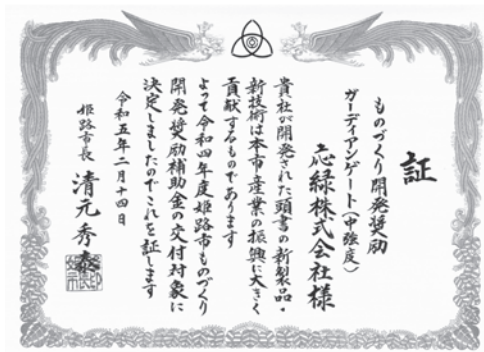 証
ものづくり開発奨励
ガーディアンゲート(中強度)
応緑株式会社様
貴社が開発された頭書の新製品・
新技術は本市産業の振興に大きく
貢献するものであります
よって令和四年度姫路市ものづくり
開発奨励補助金の交付対象に
決定しましたのでこれを証します
令和五年二月十四日
姫路市長 清元秀泰